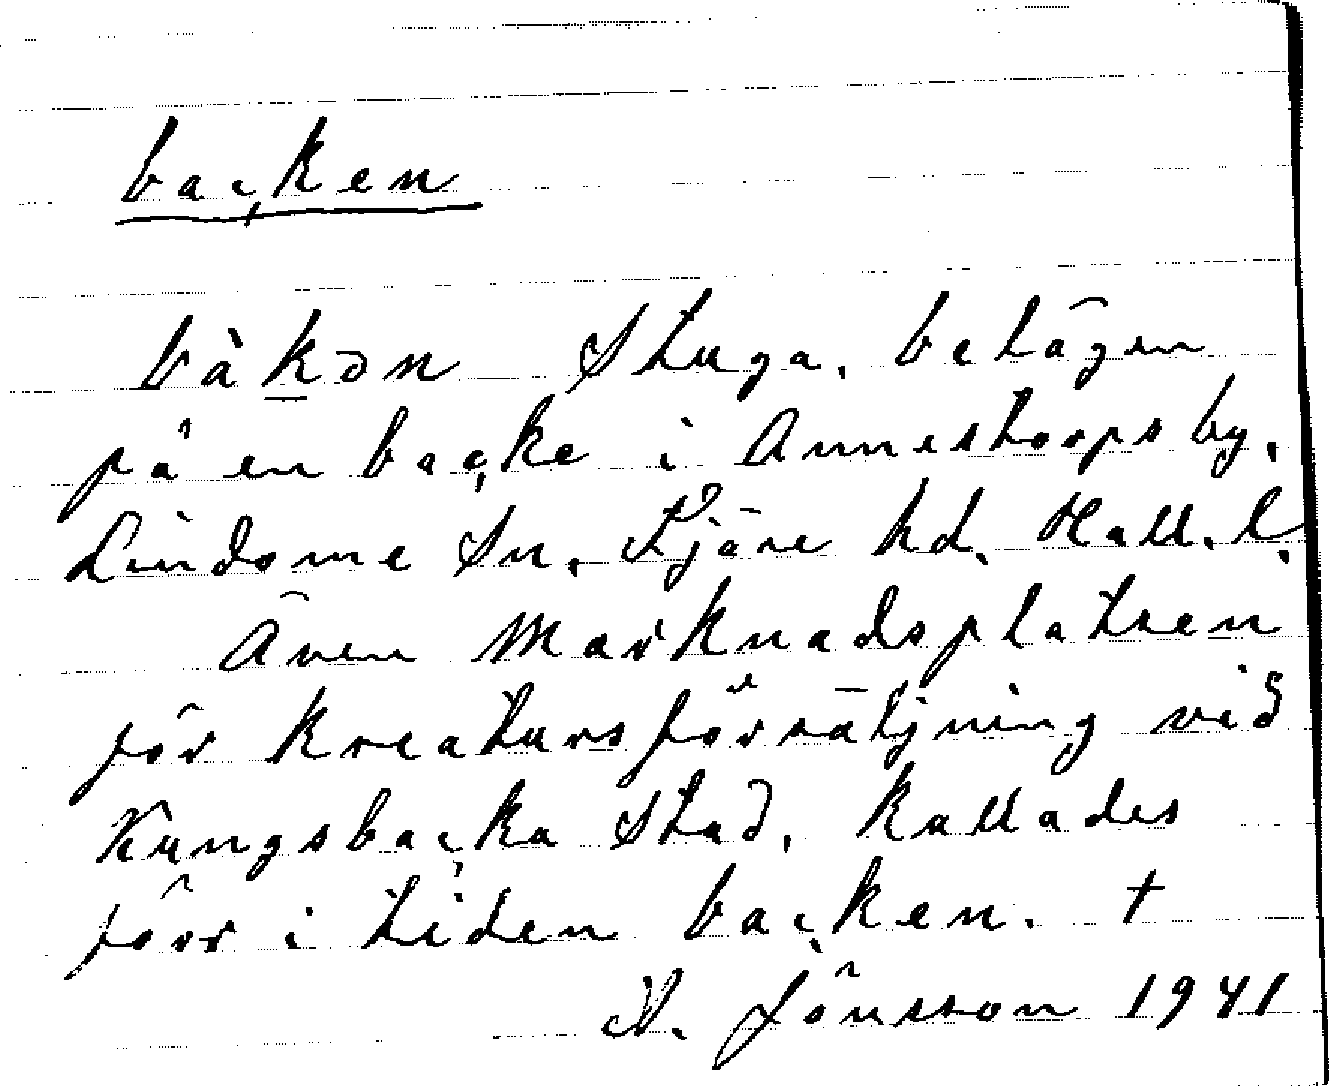 backen
bàkən Stuga, belägen
på en backe i Annestorps by,
Lindome Sn, Fjäre hd. Hall. l.
Även Marknadsplatsen
för kreatursförsäljning vid
Kungsbacka Stad, kallades
förr i tiden backen. †
Jönsson 1941